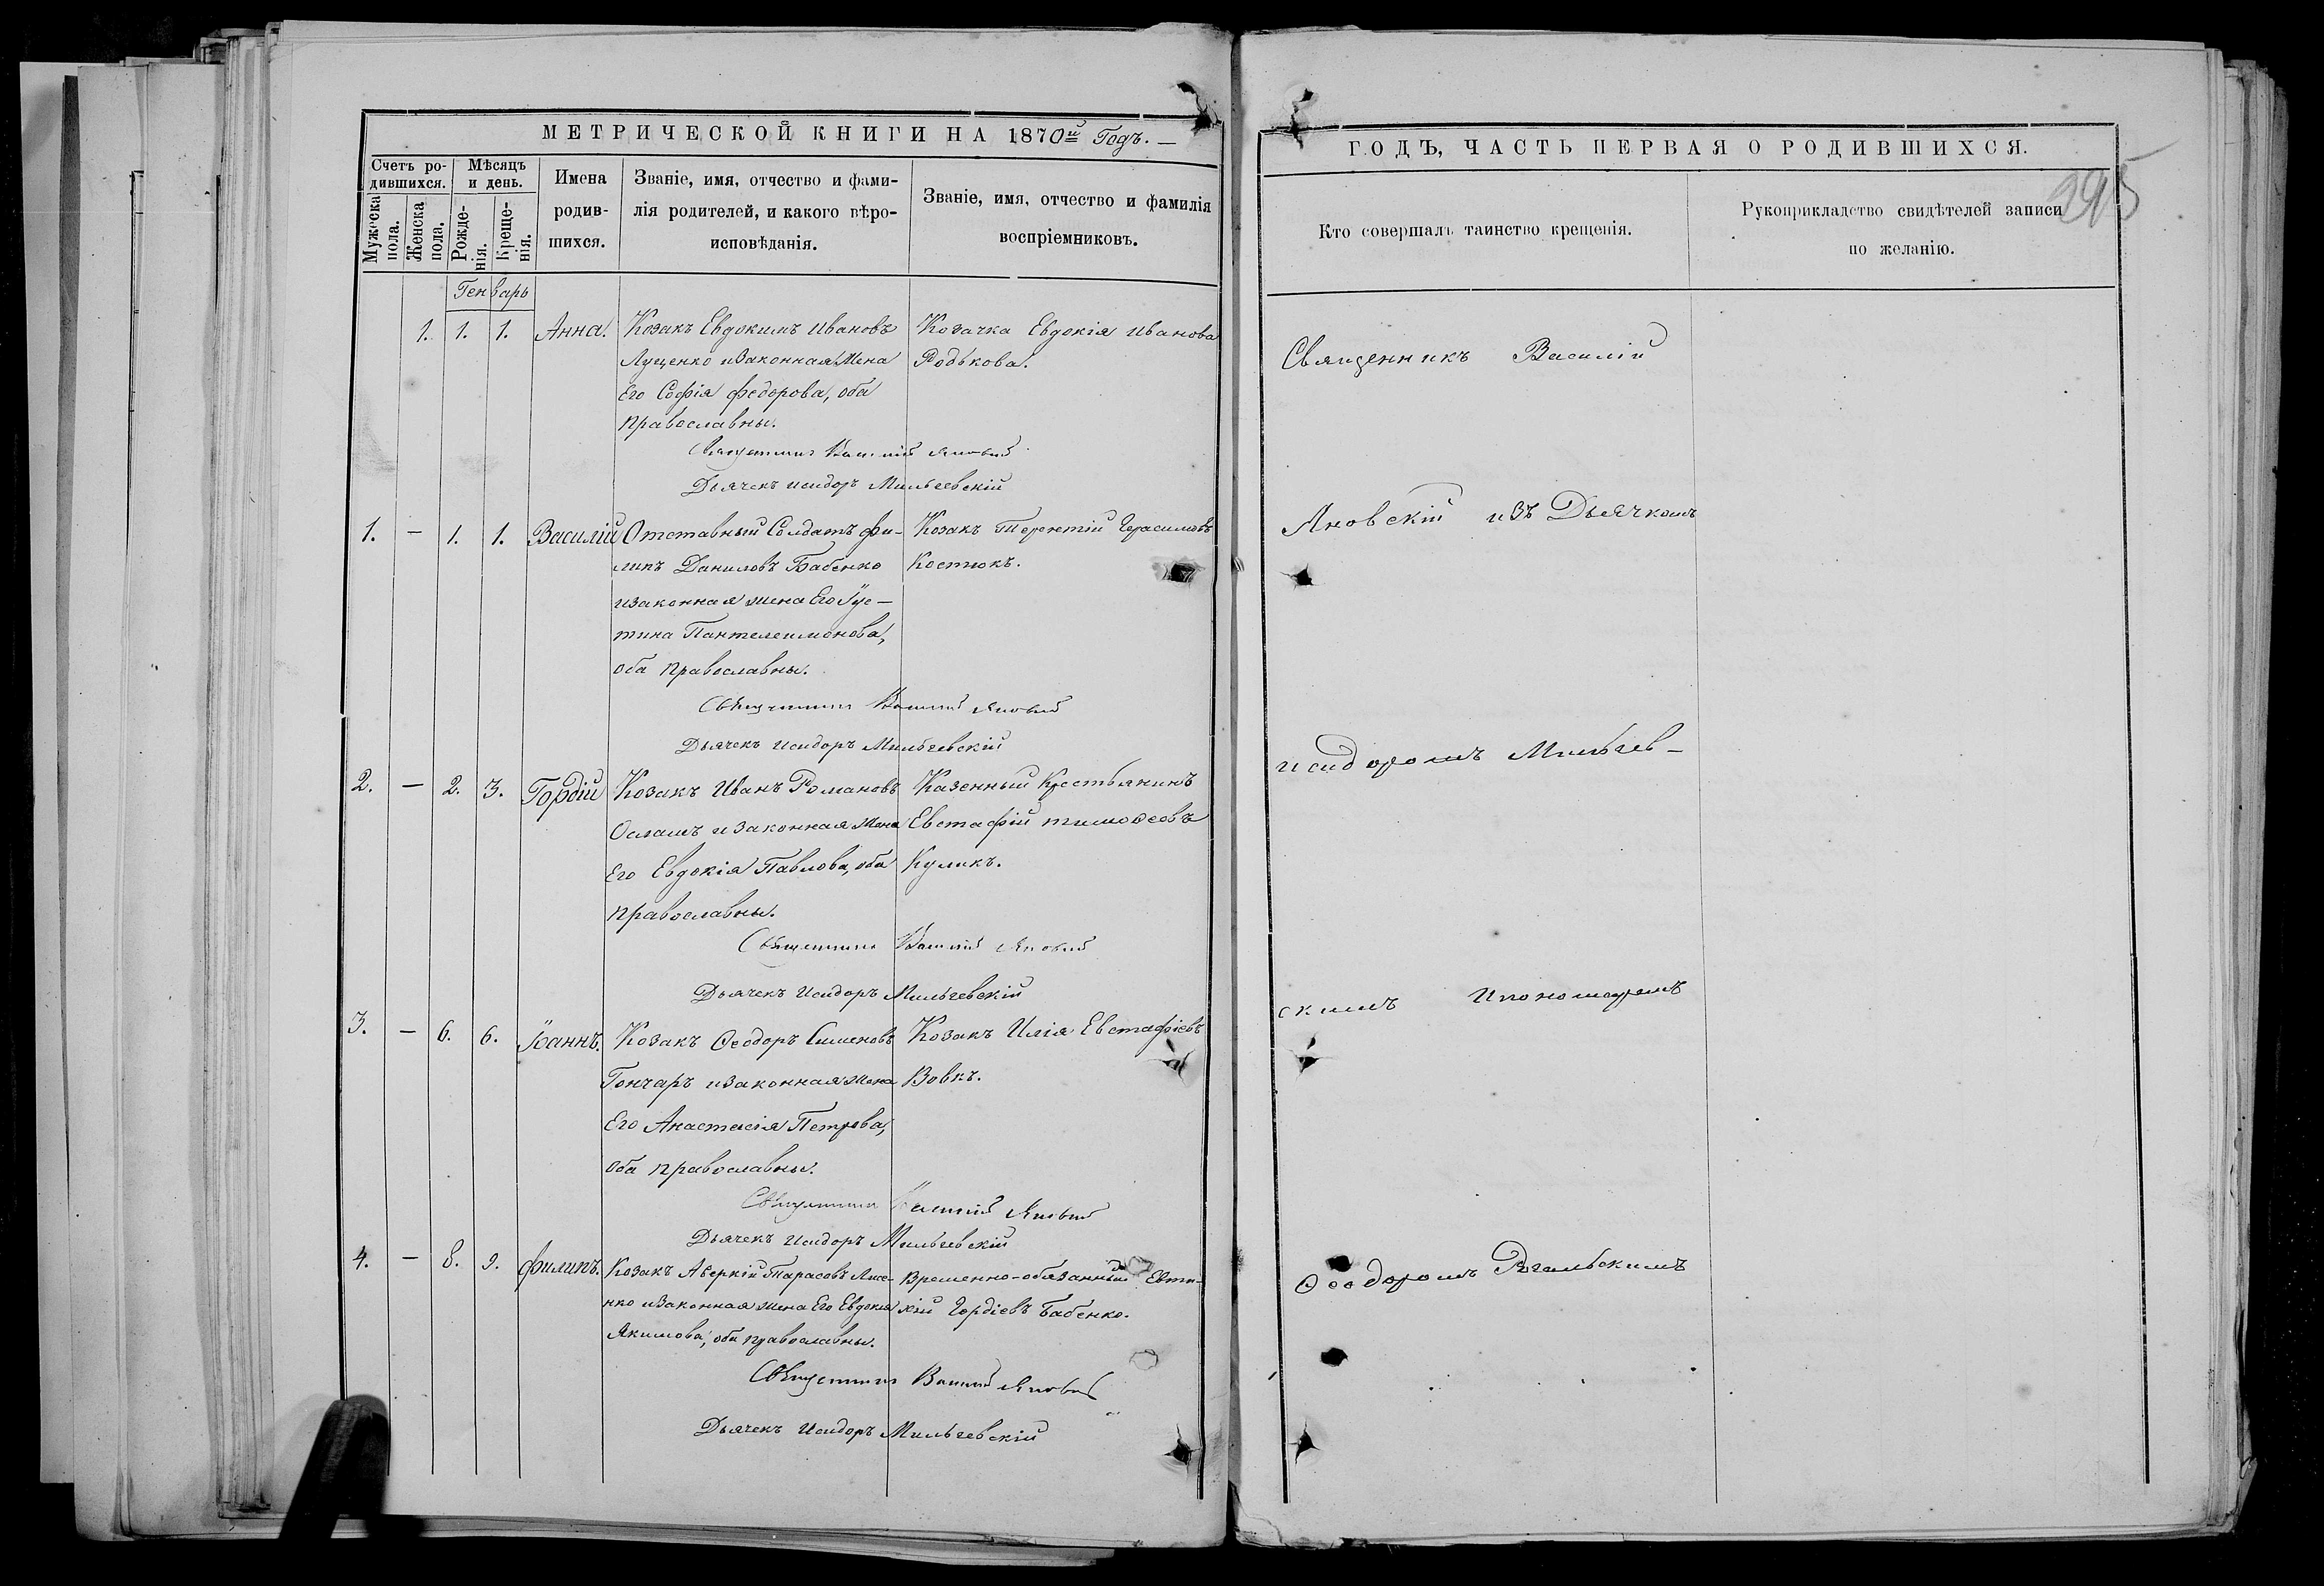 МЕТРИЧЕСКОЙ КНИГИ НА 1870й Годъ.
Счетъ ро-
дившихся.
Мужеска
пола.
Женска
пола.
Мѣсяцъ
и день.
Рожде-
нія.
Креще-
нія.
Имена
родив-
шихся.
Званіе, имя, отчество и фами-
лія родителей, и какого вѣро-
исповѣданія.
Званіе, имя, отчество и фамилія
воспріемниковъ.
Генварь
1. 1. 1. Анна. Козакъ Евдокимъ Ивановъ Козачка Евдокія Иванова
Луценко и законная жена Родькова.
Его Софія Федорова, оба
православны.
Священникъ Василій Яновскій
Дьячекъ Исидоръ Мильчевскій
1. — 1. 1. Василій Отставный Солдатъ Фи- Козакъ Терентій Герасимовъ
липъ Даниловъ Бабенко Костюкъ.
и законная жена Его Іус-
тина Пантелеимонова,
оба православны.
Священникъ Василій Яновскій
Дьячекъ Исидоръ Мильчевскій
2. — 2. 3. Гордій Козакъ Иванъ Романовъ Казенный Крестьянинъ
и законная жена Евстафій Тимоѳеовъ
Его Евдокія Павлова, оба Куликъ.
православны.
Священникъ Василій Яновскій
Дьячекъ Исидоръ Мильчевскій
3. — 6. 6. Іоаннъ. Козакъ Ѳеодоръ Симеоновъ Козакъ Илія Евстафіевъ
Гончаръ и законная жена Вовкъ.
Его Анастасія Петрова,
оба православны.
Священникъ Василій Яновскій
Дьячекъ Исидоръ Мильчевскій
4. — 8. 9. Филипъ. Козакъ Аверкій Тарасовъ Лисе- Временно-обязанный Евти-
нко и законная жена Его Евдокія хій Гордіевъ Бабенко.
Якимова, оба православны.
Священникъ Василій Яновскій
Дьячекъ Исидоръ Мильчевскій
ГОДЪ, ЧАСТЬ ПЕРВАЯ О РОДИВШИХСЯ.
295
Кто совершалъ таинство крещенія.
Рукоприкладство свидѣтелей записи
по желанію.
Священникъ Василій
Яновскій изъ Дьячкомъ
Исидоромъ Мильчев-
скимъ и пономаремъ
Ѳеодоромъ Рогальскимъ